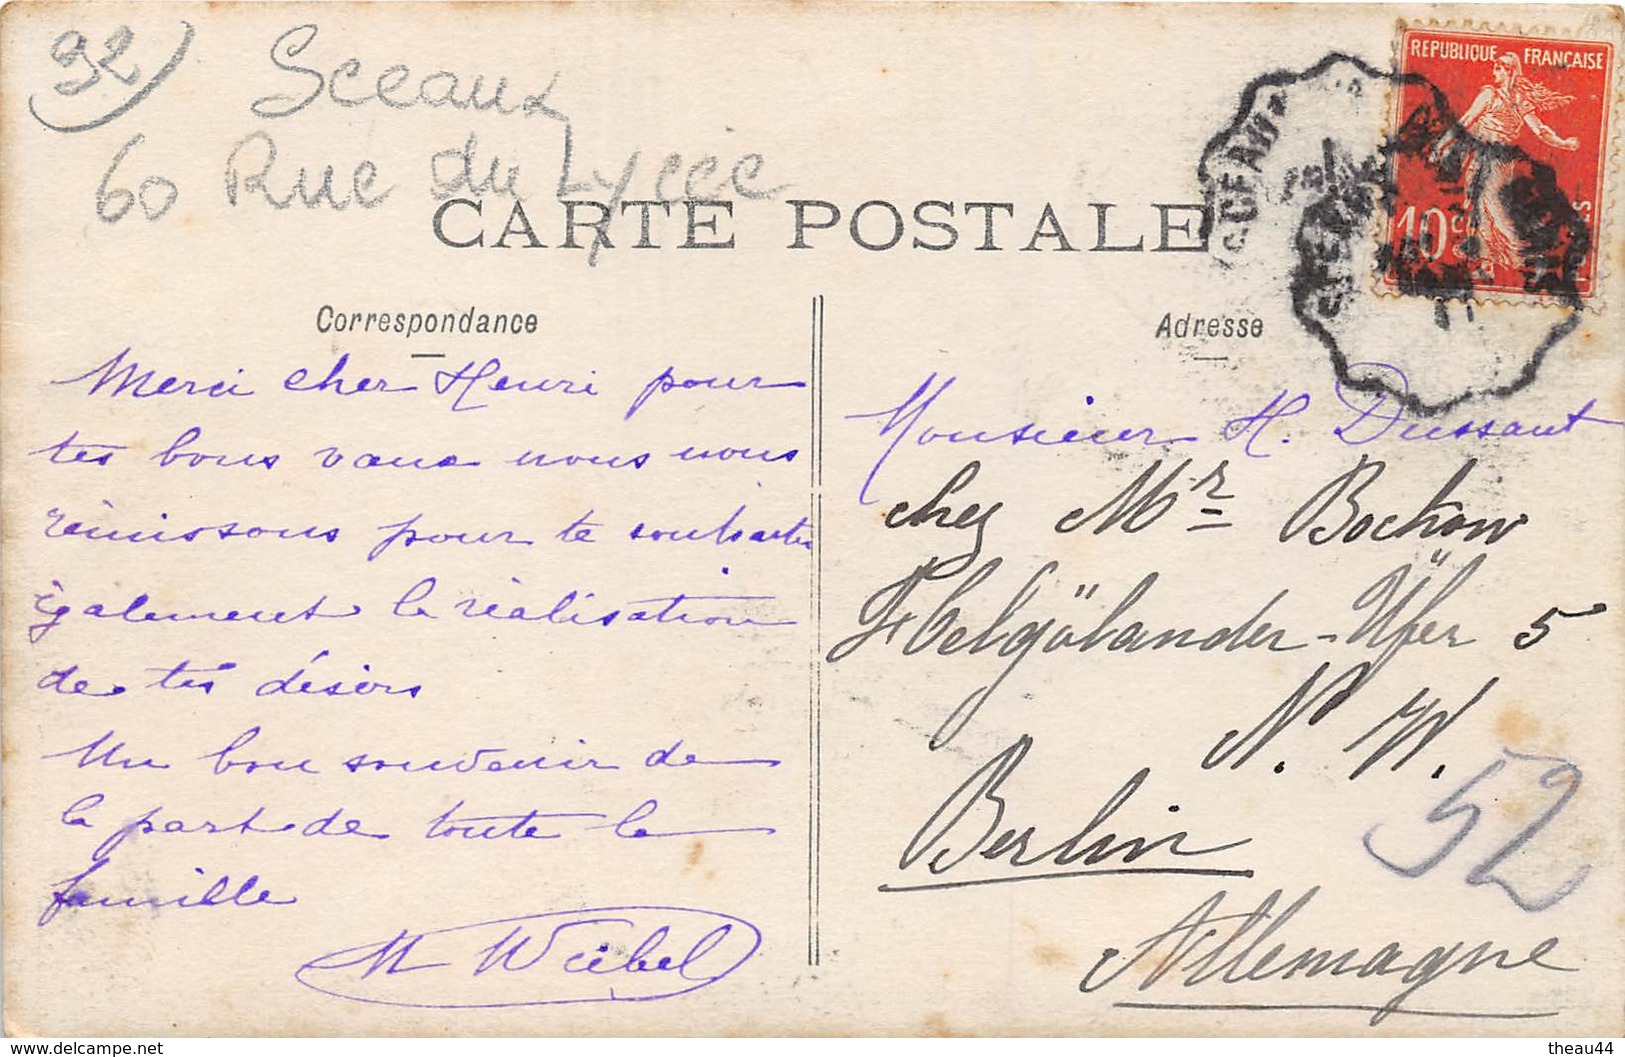 92) Sceaux
60 Rue du Lycee
REPUBLIQUE FRANÇAISE
10 c.
CARTE POSTALE
Correspondance
Merci cher Henri pour
tes bons vœux nous nous
réunissons pour te souhaiter
également la réalisation
de tes désirs
Un bon souvenir de
la part de toute la
famille
M Weibel
Adresse
Monsieur H. Dussaut
chez Mr Bochow
Helgölander-Üfer 5
N. W.
Berlin
Allemagne
52
delcampe.net
theau44